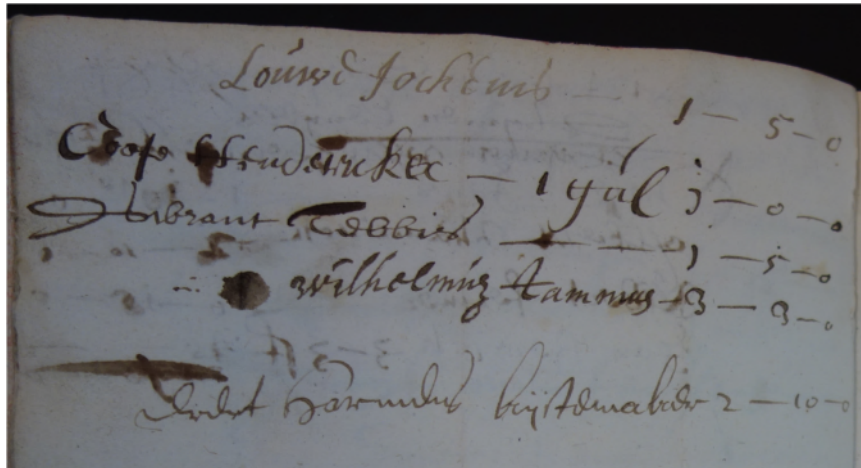 Louwe Jochems — 1 — 5 — 0
Coope Henderickes — 1 gul 1 — 0 — 0
Sibrant Tebbies — 1 — 5 — 0
wilhelmus tammus — 3 — 3 — 0
Harmdes kystemaker 2 — 10 — 0